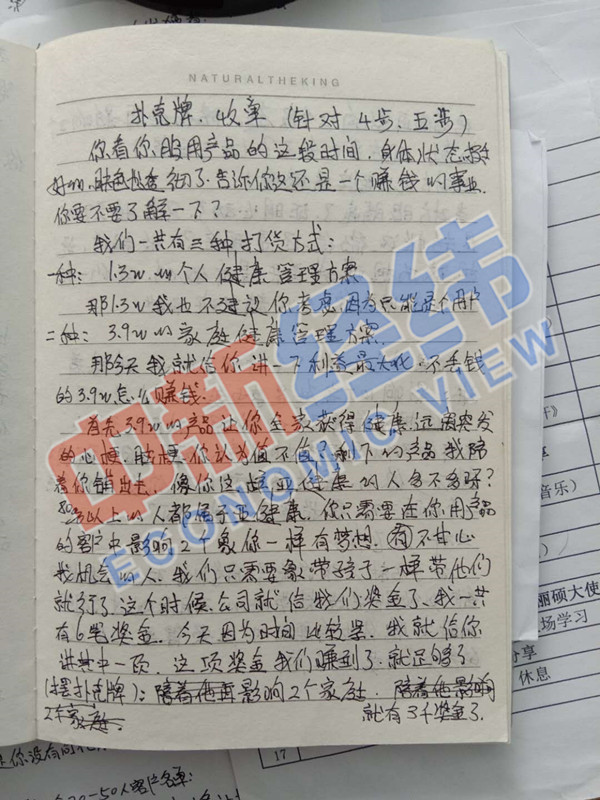 NATURALTHEKING
扑克牌、收单(针对、4步、五步)
你看你服用产品的这段时间,身体状态
好 肤色 细了,告诉你这还是一个赚钱的事业
你要不要了解一下?
我们一共有三种打货方式:
一种: 1.3w的个人健康管理方案
那1.3w我也不建议你考虑因为只能是个用户
二种: 3.9w的家庭健康管理方案
那今天我就给你讲一下利益最大化、不丢钱
的3.9w怎么赚钱.
首先3.9w的产品让你全家获得健康,远离突发
的心梗、脑梗,你认为值不值?剩下的产品我陪
着你铺出去,像你这样亚健康的人多不多呀?
以上的人都属于亚健康,你只需要在你用产品
的客户中影响2个象你一样有梦想,有不甘心
找机会的人,我们只需要象带孩子一样带他们
就行了,这个时候公司就给我们奖金了,我一共
有6笔奖金,今天因为时间比较紧,我就给你
讲其中一项,这项奖金我们赚到了,就足够了
(摆扑克牌):陪着他再影响2个家庭,陪着他影响
2个家庭.
就有3千奖金了.
中新经纬
ECONOMIC VIEW
音乐)
丽硕大使
场学习
分享
休息
17
你没有问
50人客户名单: